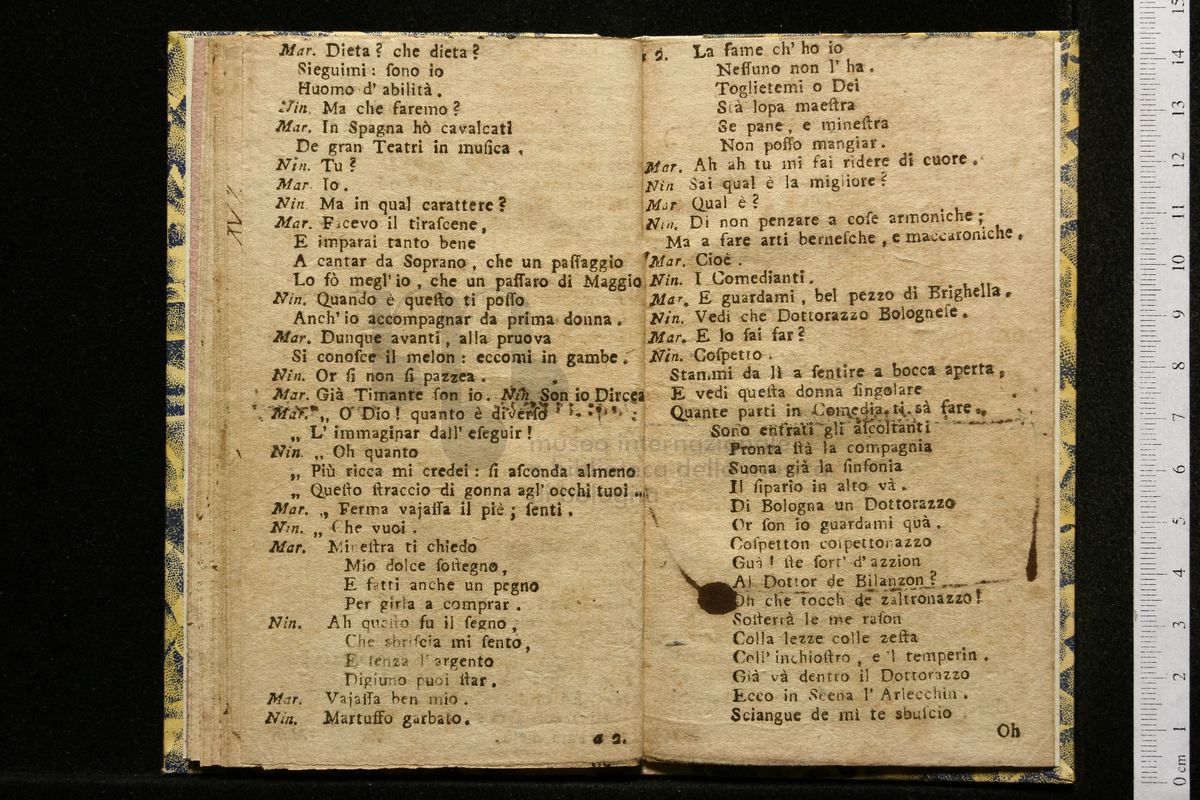 Mar. Dieta? che dieta?
Sieguimi: ſono io
Huomo d' abilità.
Nin. Ma che faremo?
Mar. In Spagna hò cavalcati
De gran Teatri in muſica.
Nin. Tu?
Mar. Io.
Nin. Ma in qual carattere?
Mar. Facevo il tiraſcene,
E imparai tanto bene
A cantar da Soprano, che un paſſaggio
Lo fò megl' io, che un paſſaro di Maggio
Nin. Quando è queſto ti poſſo
Anch' io accompagnar da prima donna.
Mar. Dunque avanti, alla pruova
Si conoſce il melon: eccomi in gambe.
Nin. Or ſi non ſi pazzea.
Mar. Già Timante ſon io. Nin. Son io Dircea
Mar. „ O Dio! quanto è diverſo
„ L' immaginar dall' eſeguir!
Nin. „ Oh quanto
„ Più ricca mi credei: ſi aſconda almeno
„ Queſto ſtraccio di gonna agl' occhi tuoi...
Mar. „ Ferma vajaſſa il piè; ſenti.
Nin. „ Che vuoi.
Mar. Mineſtra ti chiedo
Mio dolce ſoſtegno,
E fatti anche un pegno
Per girla a comprar.
Nin. Ah queſto fu il ſegno,
Che sbriſcia mi ſento,
E ſenza l' argento
Digiuno puoi ſtar.
Mar. Vajaſſa ben mio.
Nin. Martuſſo garbato.
a 2.
a 2. La fame ch' ho io
Neſſuno non l' ha.
Toglietemi o Dei
Stà lopa maeſtra
Se pane, e mineſtra
Non poſſo mangiar.
Mar. Ah ah tu mi fai ridere di cuore.
Nin Sai qual è la migliore?
Mar Qual è?
Nin. Di non penzare a coſe armoniche;
Ma a fare arti berneſche, e maccaroniche.
Mar. Cioè.
Nin. I Comedianti.
Mar. E guardami, bel pezzo di Brighella.
Nin. Vedi che Dottorazzo Bologneſe.
Mar. E lo ſai far?
Nin. Coſpetto.
Stammi da lì a ſentire a bocca aperta,
E vedi queſta donna ſingolare
Quante parti in Comedia ti sà fare.
Sono entrati gli aſcoltanti
Pronta ſtà la compagnia
Suona già la ſinfonia
Il ſipario in alto và.
Di Bologna un Dottorazzo
Or ſon io guardami quà.
Coſpetton coſpettonazzo
Guà! ſte ſort' d' azzion
Al Dottor de Bilanzon?
Oh che tocch de zaltronazzo!
Soſterrà le me raſon
Colla lezze colle zeſta
Coll' inchioſtro, e 'l temperin.
Già và dentro il Dottorazzo
Ecco in Scena l' Arlecchin.
Sciangue de mi te sbuſcio
Oh
museo internazionale